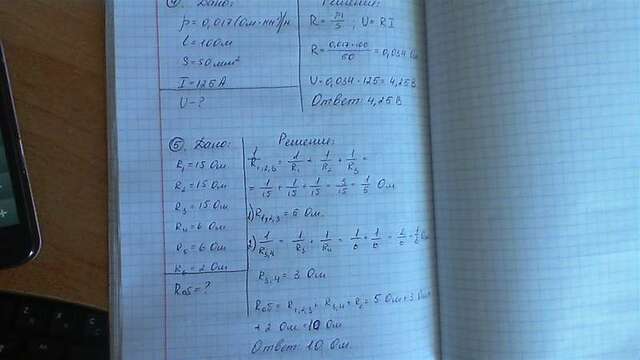 ④ Дано:
ρ = 0,017 (Ом·мм²)/м
l = 100м
S = 50мм²
I = 125 А
U - ?
Решение:
R = ρl/S ; U = RI
R = 0,017·100/50 = 0,034 Ом
U = 0,034·125 = 4,25 В
Ответ: 4,25 В
⑤ Дано:
R₁ = 15 Ом
R₂ = 15 Ом
R₃ = 15 Ом
R₄ = 6 Ом
R₅ = 6 Ом
R₆ = 2 Ом
Rоб = ?
Решение:
1/R₁,₂,₃ = 1/R₁ + 1/R₂ + 1/R₃ =
= 1/15 + 1/15 + 1/15 = 3/15 = 1/5 Ом
1) R₁,₂,₃ = 5 Ом.
2) 1/R₃,₄ = 1/R₃ + 1/R₄ = 1/6 + 1/6 = 2/6 = 1/3 Ом
R₃,₄ = 3 Ом
Rоб = R₁,₂,₃ + R₃,₄ + R₅ = 5 Ом + 3 Ом +
+ 2 Ом = 10 Ом
Ответ: 10 Ом.